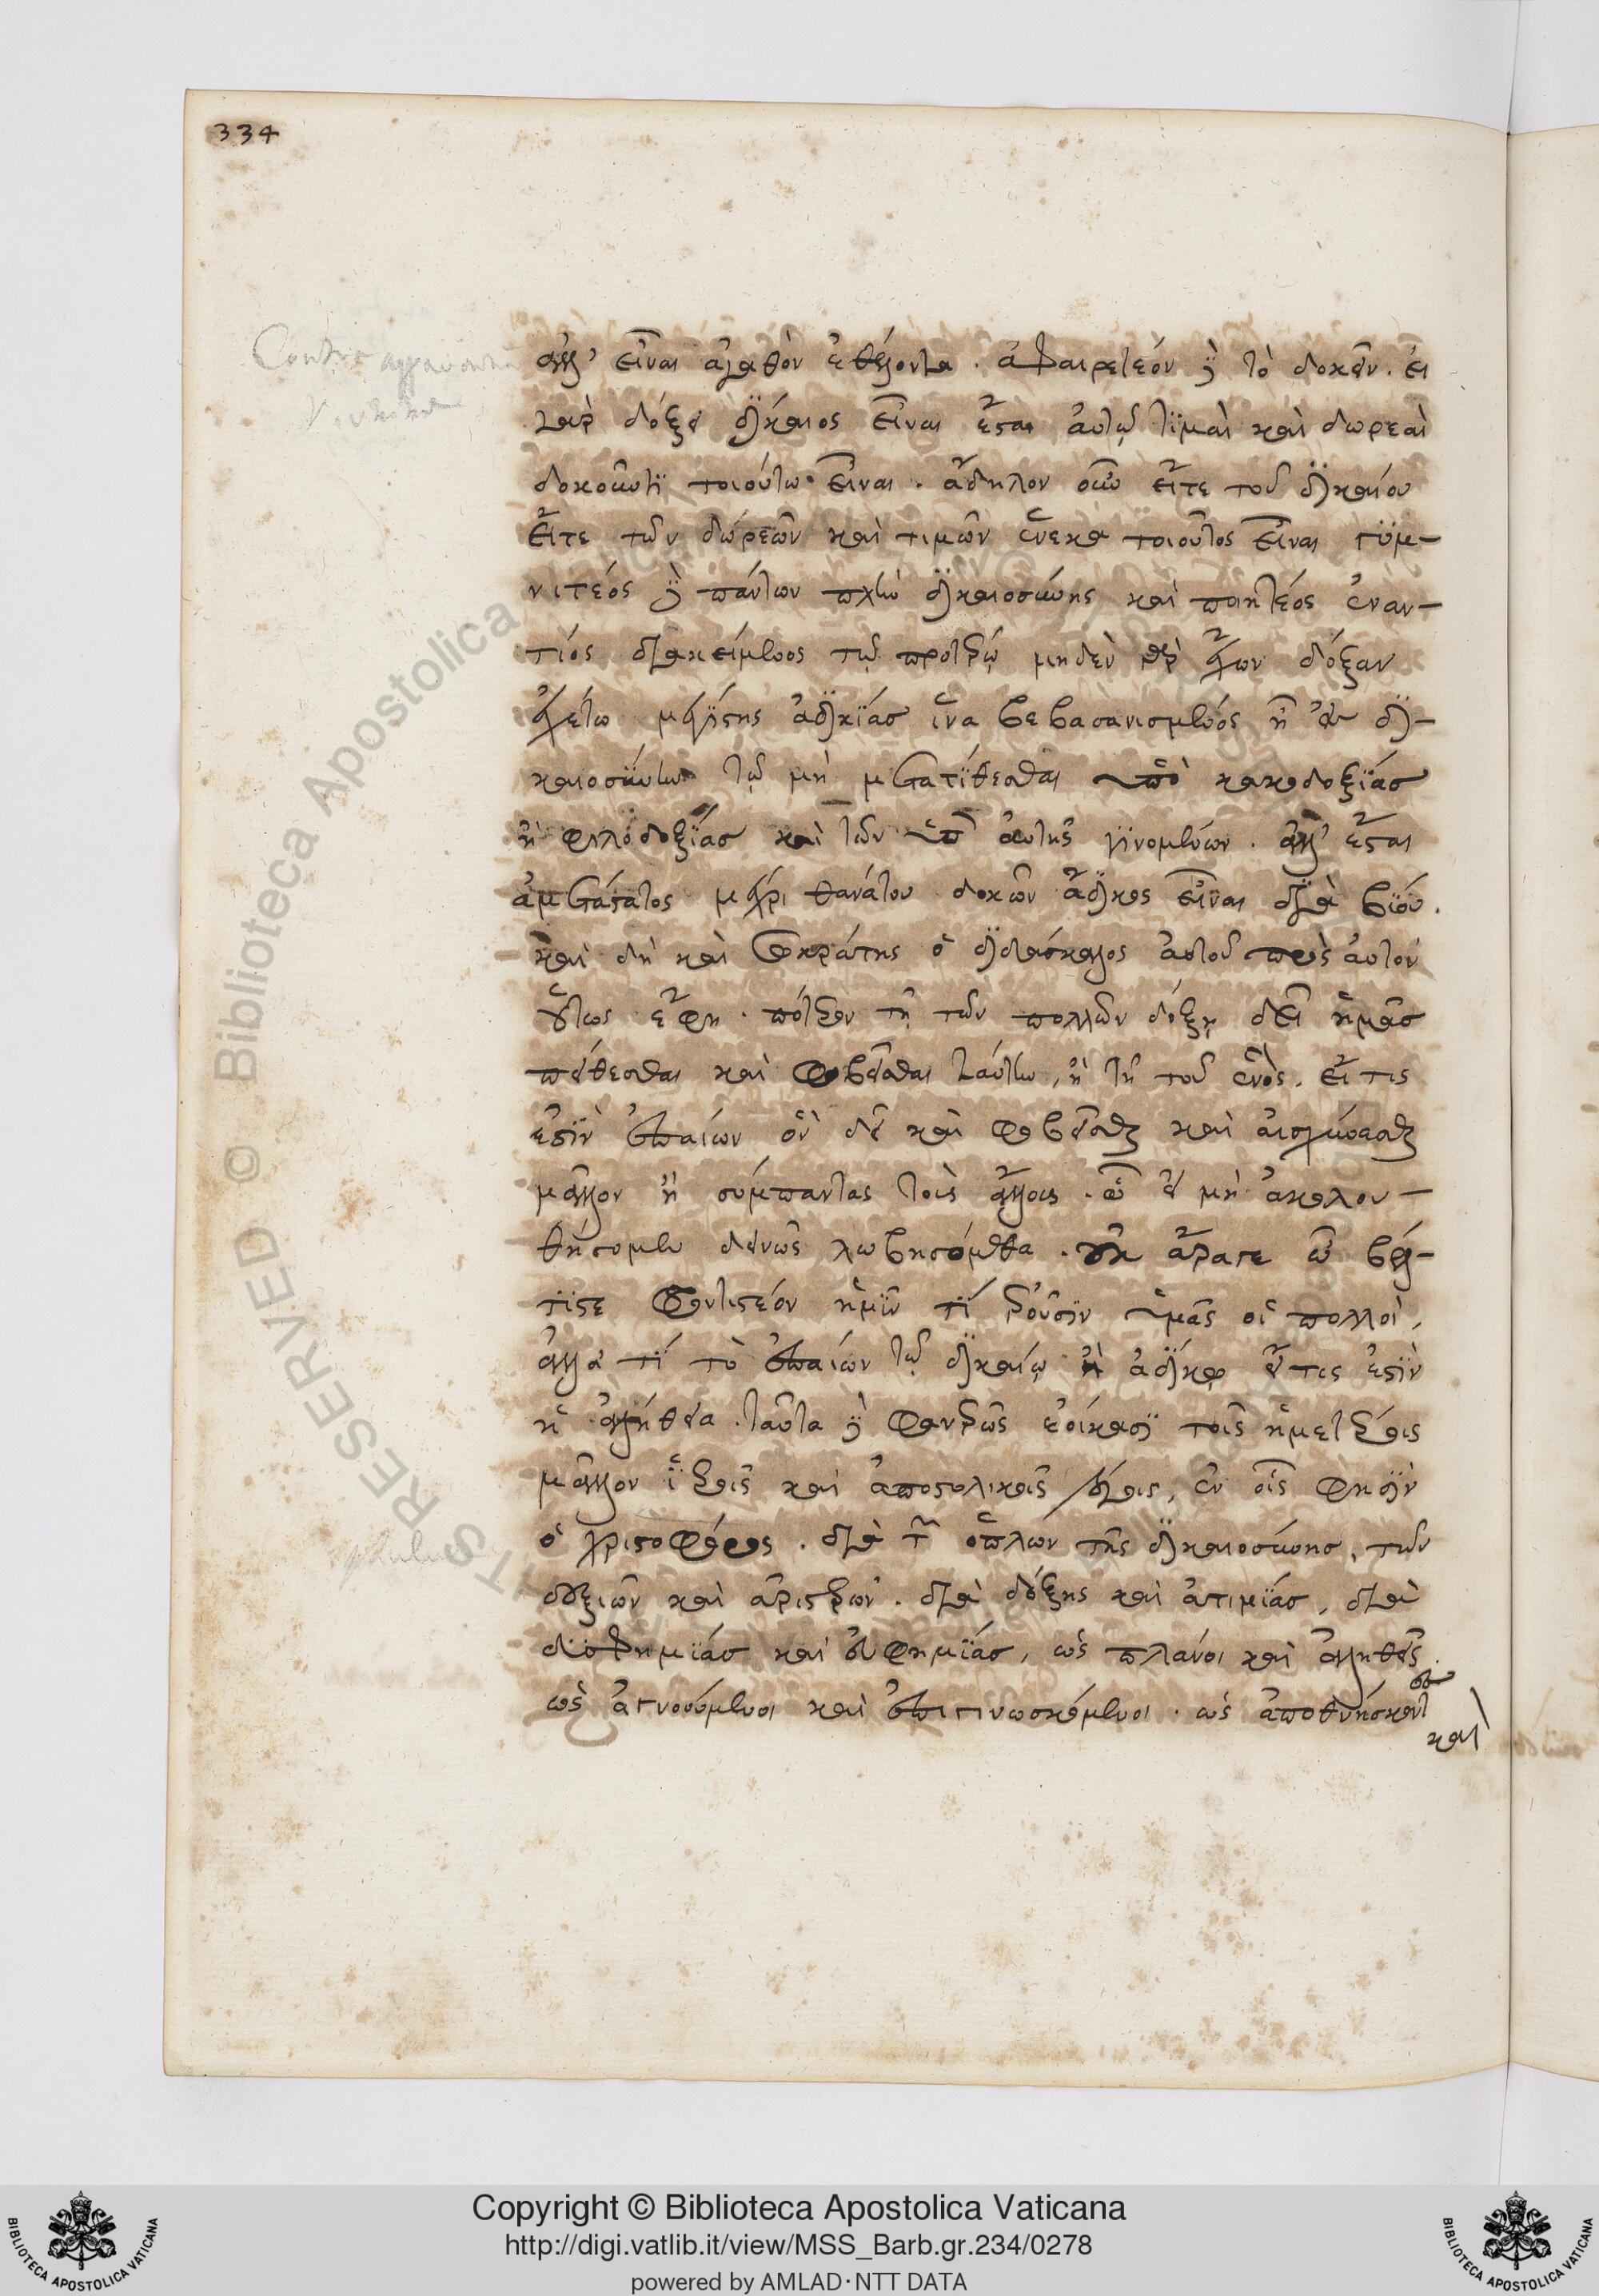 334
ἀλλ' εἶναι ἀγαθὸν ἐθέλοντα. ἀφαιρετέον δὲ τὸ δοκεῖν. εἰ
γὰρ δόξει δίκαιος εἶναι ἔσται αὐτῷ τιμαὶ καὶ δωρεαὶ
δοκοῦντι τοιούτω εἶναι. ἄδηλον οὖν εἴτε τοῦ δικαίου
εἴτε τῶν δωρεῶν καὶ τιμῶν ἕνεκα τοιοῦτος εἶναι γυμ-
νιτέος δὲ πάντων πλὴν δικαιοσύνης καὶ ποιητέος ἐναν-
τίος διακείμενος τῷ προτέρῳ μηδὲν γὰρ ἔχων δόξαν
ἐχέτω μεγίστης ἀδικίας ἵνα βεβασανισμένος ᾖ εἰς δι-
καιοσύνην τῷ μὴ μετατίθεσθαι ὑπὸ κακοδοξίας
ἢ φιλοδοξίας καὶ τῶν ὑπ' αὐτῆς γινομένων. ἀλλ' ἔσται
ἀμετάστατος μέχρι θανάτου δοκῶν ἄδικος εἶναι διὰ βίου.
καὶ δὴ καὶ Σωκράτης ὁ διδάσκαλος αὐτοῦ πρὸς αὐτὸν
οὕτως ἔφη. πότερον τῇ τῶν πολλῶν δόξῃ δεῖ ἡμᾶς
πείθεσθαι καὶ φοβεῖσθαι ταύτην, ἢ τῇ τοῦ ἑνὸς. εἴ τις
ἐστὶν ἐπαίων ὃν δεῖ καὶ φοβεῖσθαι καὶ αἰσχύνεσθαι
μᾶλλον ἢ σύμπαντας τοὺς ἄλλους. ᾧ εἰ μὴ ἀκολου-
θήσομεν δεινῶς λωβησόμεθα. οὐκ ἄρα γε ὦ βέλ-
τιστε φροντιστέον ἡμῖν τί ἐροῦσιν ἡμᾶς οἱ πολλοὶ,
ἀλλὰ τί τὸ ἐπαίων τῷ δικαίῳ ἢ ἀδίκῳ εἴ τις ἐστὶν
ἡ ἀλήθεια. ταῦτα δὲ φανερῶς ἐοίκασι τοῖς ἡμετέροις
μᾶλλον ἱεροῖς καὶ ἀποστολικοῖς λόγοις, ἐν οἷς φησὶν
ὁ χριστοφόρος. διὰ τῶν ὅπλων τῆς δικαιοσύνης, τῶν
δεξιῶν καὶ ἀριστερῶν. διὰ δόξης καὶ ἀτιμίας, διὰ
δυσφημίας καὶ εὐφημίας, ὡς πλάνοι καὶ ἀληθεῖς.
ὡς ἀγνοούμενοι καὶ ἐπιγινωσκόμενοι. ὡς ἀποθνήσκοντες
καὶ
Copyright © Biblioteca Apostolica Vaticana
http://digi.vatlib.it/view/MSS_Barb.gr.234/0278
powered by AMLAD·NTT DATA